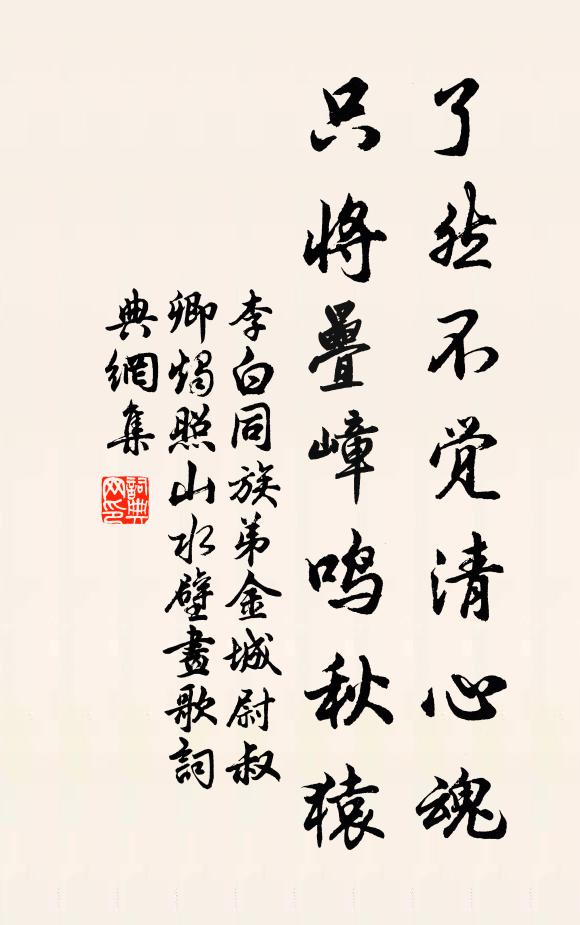 了然不觉清心魂
只将疊嶂鸣秋猿
李白同族弟金城尉叔
卿燭照山水壁畫歌詞
典網集
詞典网印